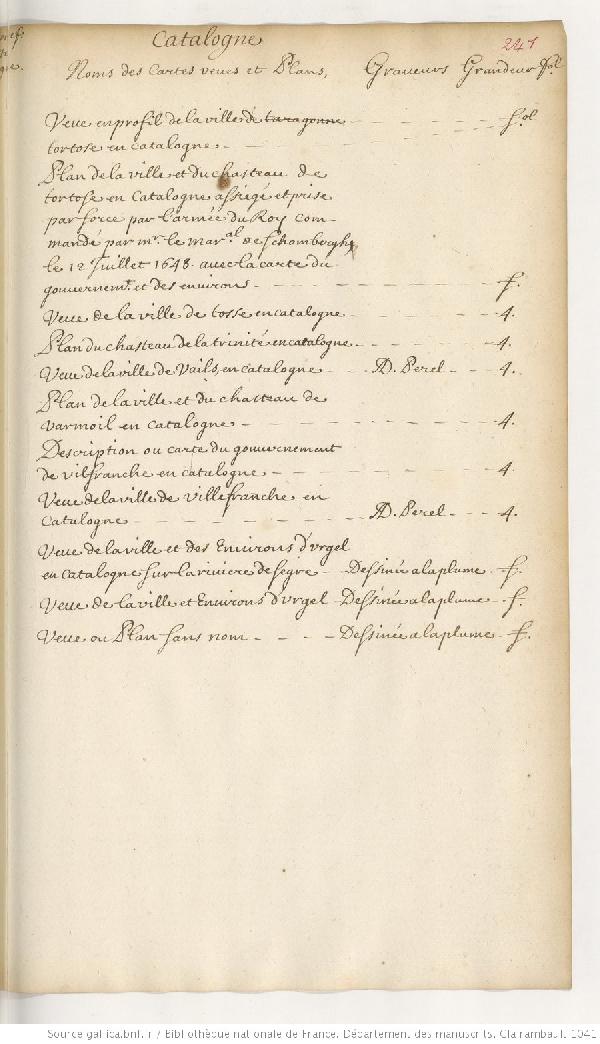 Catalogne
241
Noms des Cartes veues et Plans, Graveurs Grandeur fol
Veue en profil de la ville de taragonne - - - - fol
tortose en catalogne -
Plan de la ville et du chasteau de
tortose en Catalogne assiegé et prise
par force par l'armée du Roy com-
mandé par mr. le maral. de schomberghe
le 12 Juillet 1648. avec la carte du
gouvernemt. et des environs - - - - f.
Veue de la ville de tosse en catalogne - - - - 4.
Plan du chasteau de la trinité en catalogne - - - - 4.
Veue de la ville de Vails, en catalogne - - AD. Perel - - - 4.
Plan de la ville et du chasteau de
varmoil en catalogne - - - - 4.
Description ou carte du gouvernement
de vilfranche en catalogne - - - - 4
Veue de la ville de villefranche en
Catalogne - - - - AD. Perel - - - 4.
Veue de la ville et des Environs d'vrgel
en catalogne sur la riviere de segre - Dessinée a la plume - f.
Veue de la ville et Environs d'vrgel - Dessinée a la plume - f.
Veue ou Plan sans nom - - - - Dessinée a la plume - f.
Source gallica.bnf.fr / Bibliothèque nationale de France. Département des manuscrits. Clairambault 1041